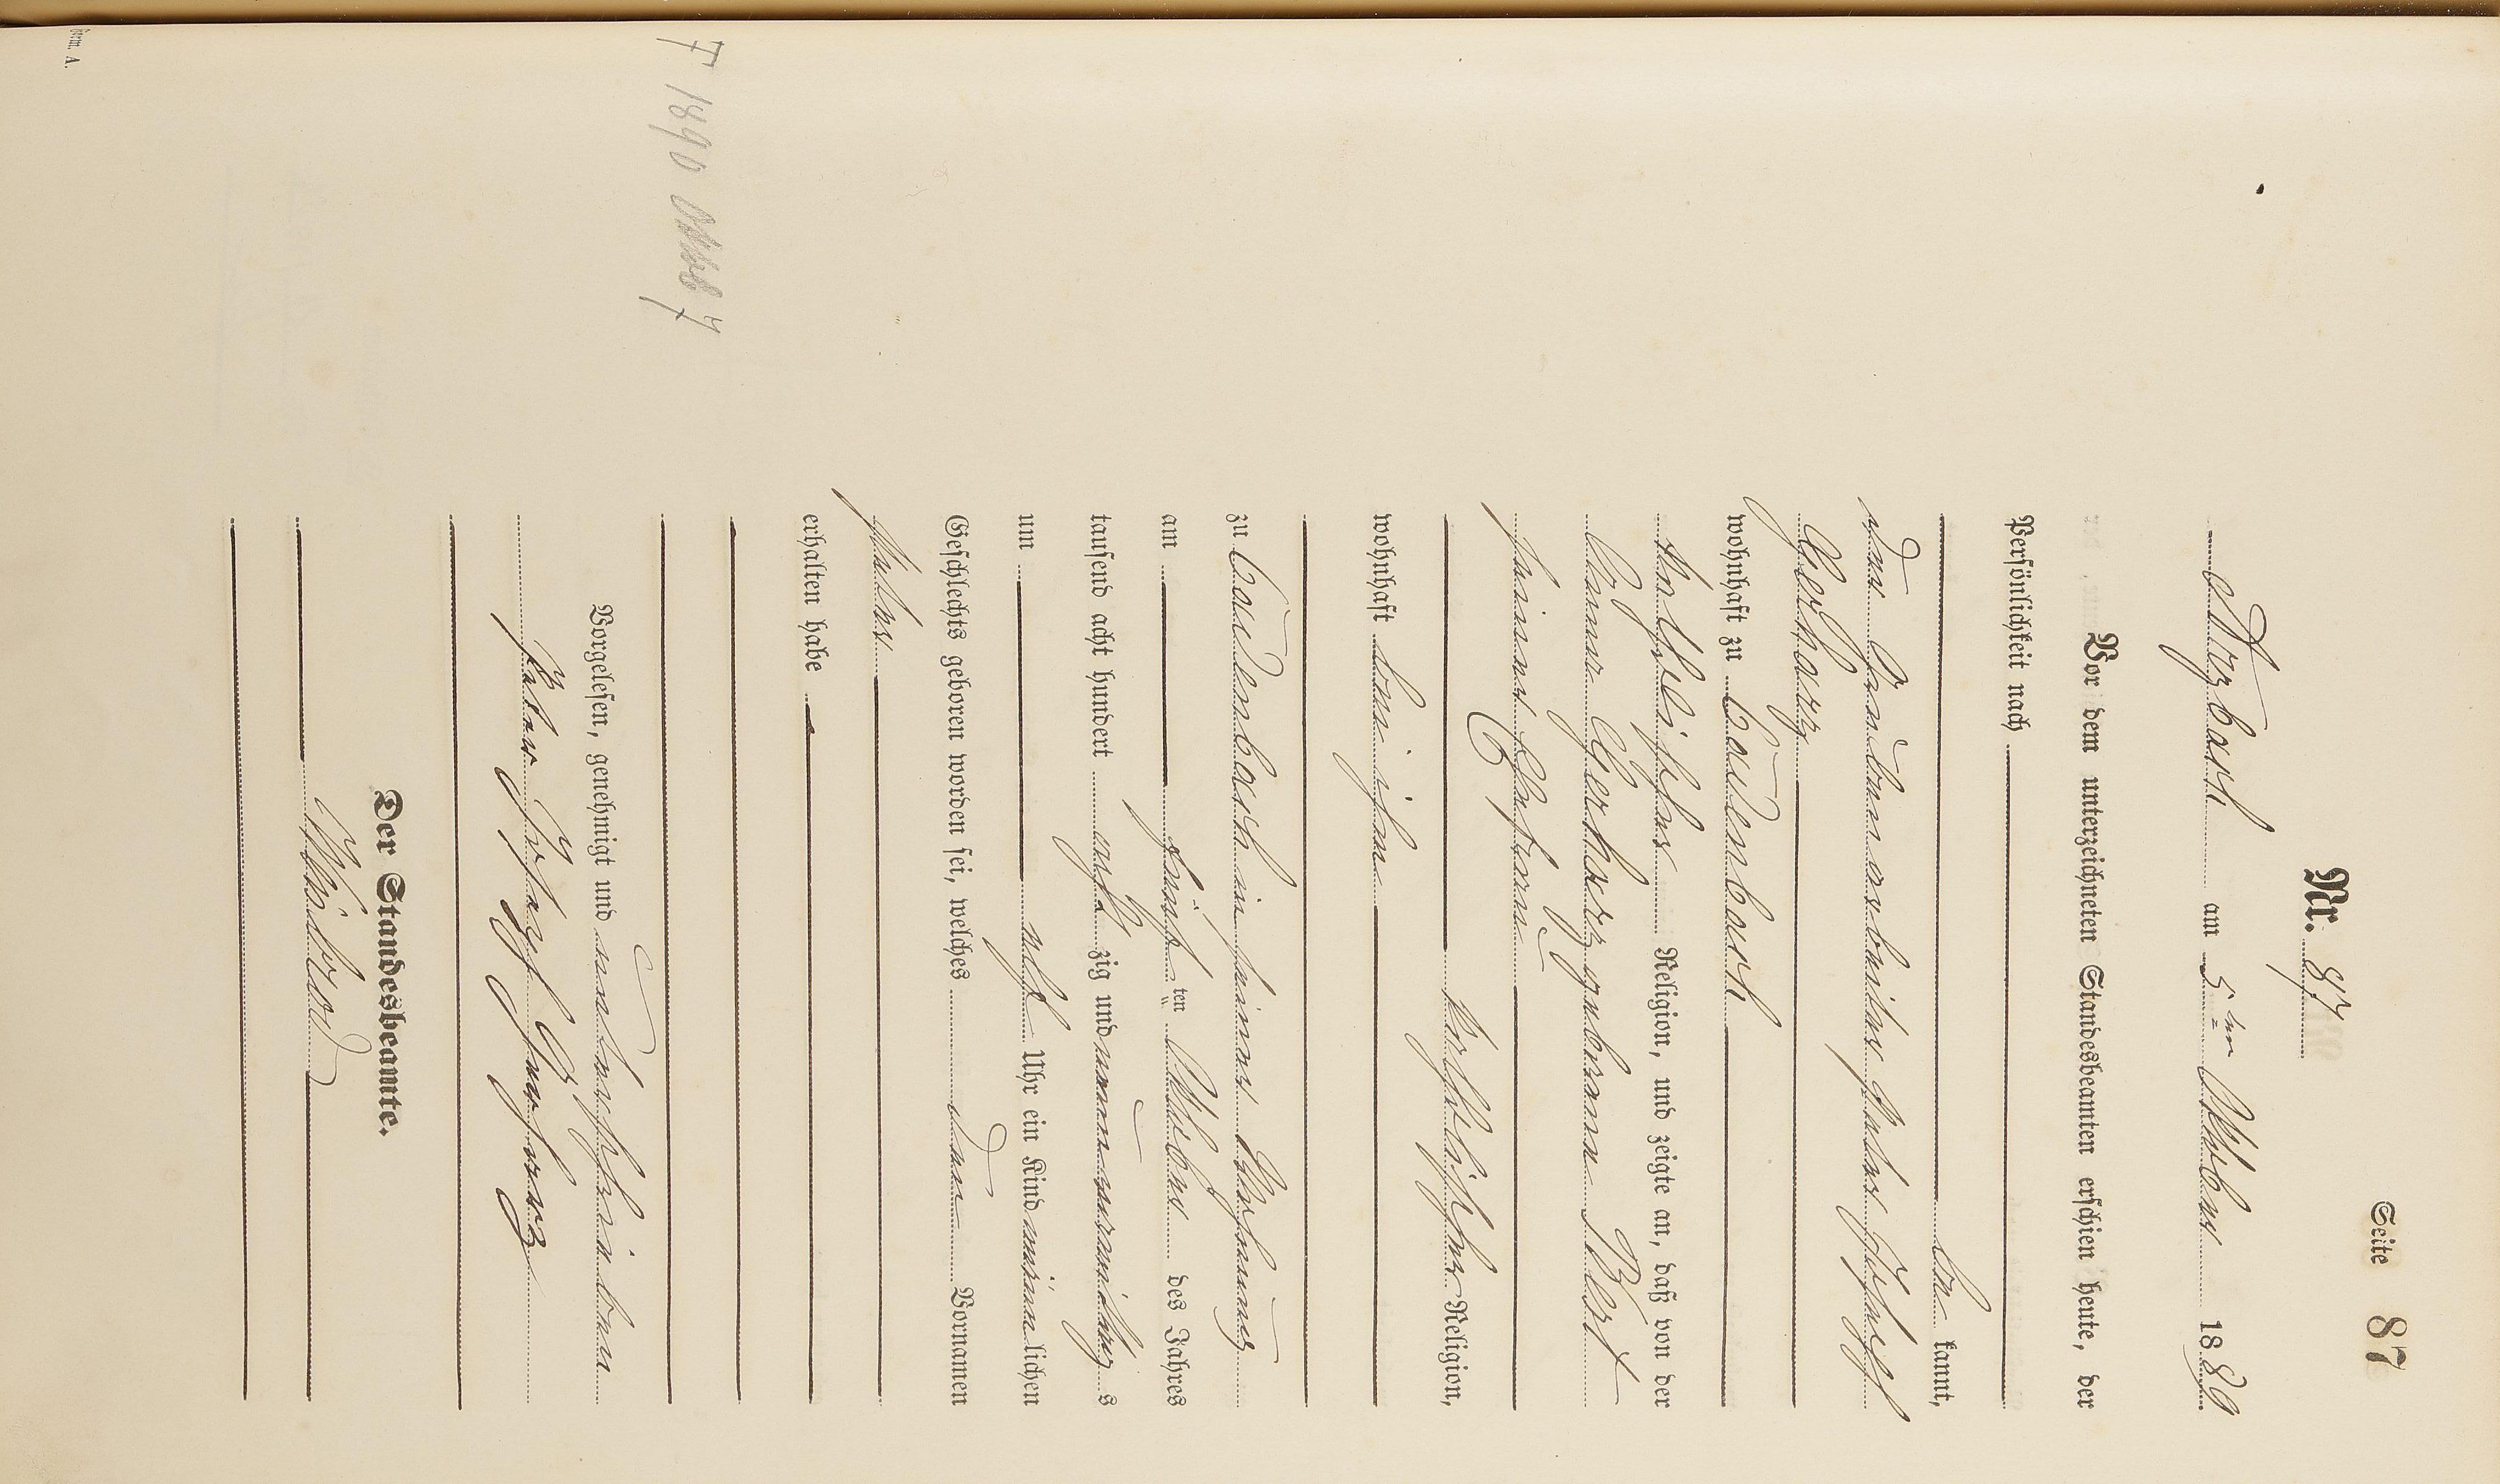 Seite 87
Nr. 87
Arzbach am 5ten Oktober 1889
Vor dem unterzeichneten Standesbeamten erschien heute, der
Persönlichkeit nach
be kannt,
der Grubenarbeiter Peter Joseph
Gerharz
wohnhaft zu Cadenbach
katholischer Religion, und zeigte an, daß von der
Anna Gerharz geborene
seiner Ehefrau
katholischer Religion,
wohnhaft bei ihm
zu Cadenbach in seiner Wohnung
am fünf ten Oktober des Jahres
tausend acht hundert acht zig und neun vormittag s
um elf Uhr ein Kind männ lichen
Geschlechts geboren worden sei, welches den Vornamen
Peter
erhalten habe
Vorgelesen, genehmigt und unterschrieben
Peter Joseph Gerharz
Der Standesbeamte.
† 1890
Form. A.